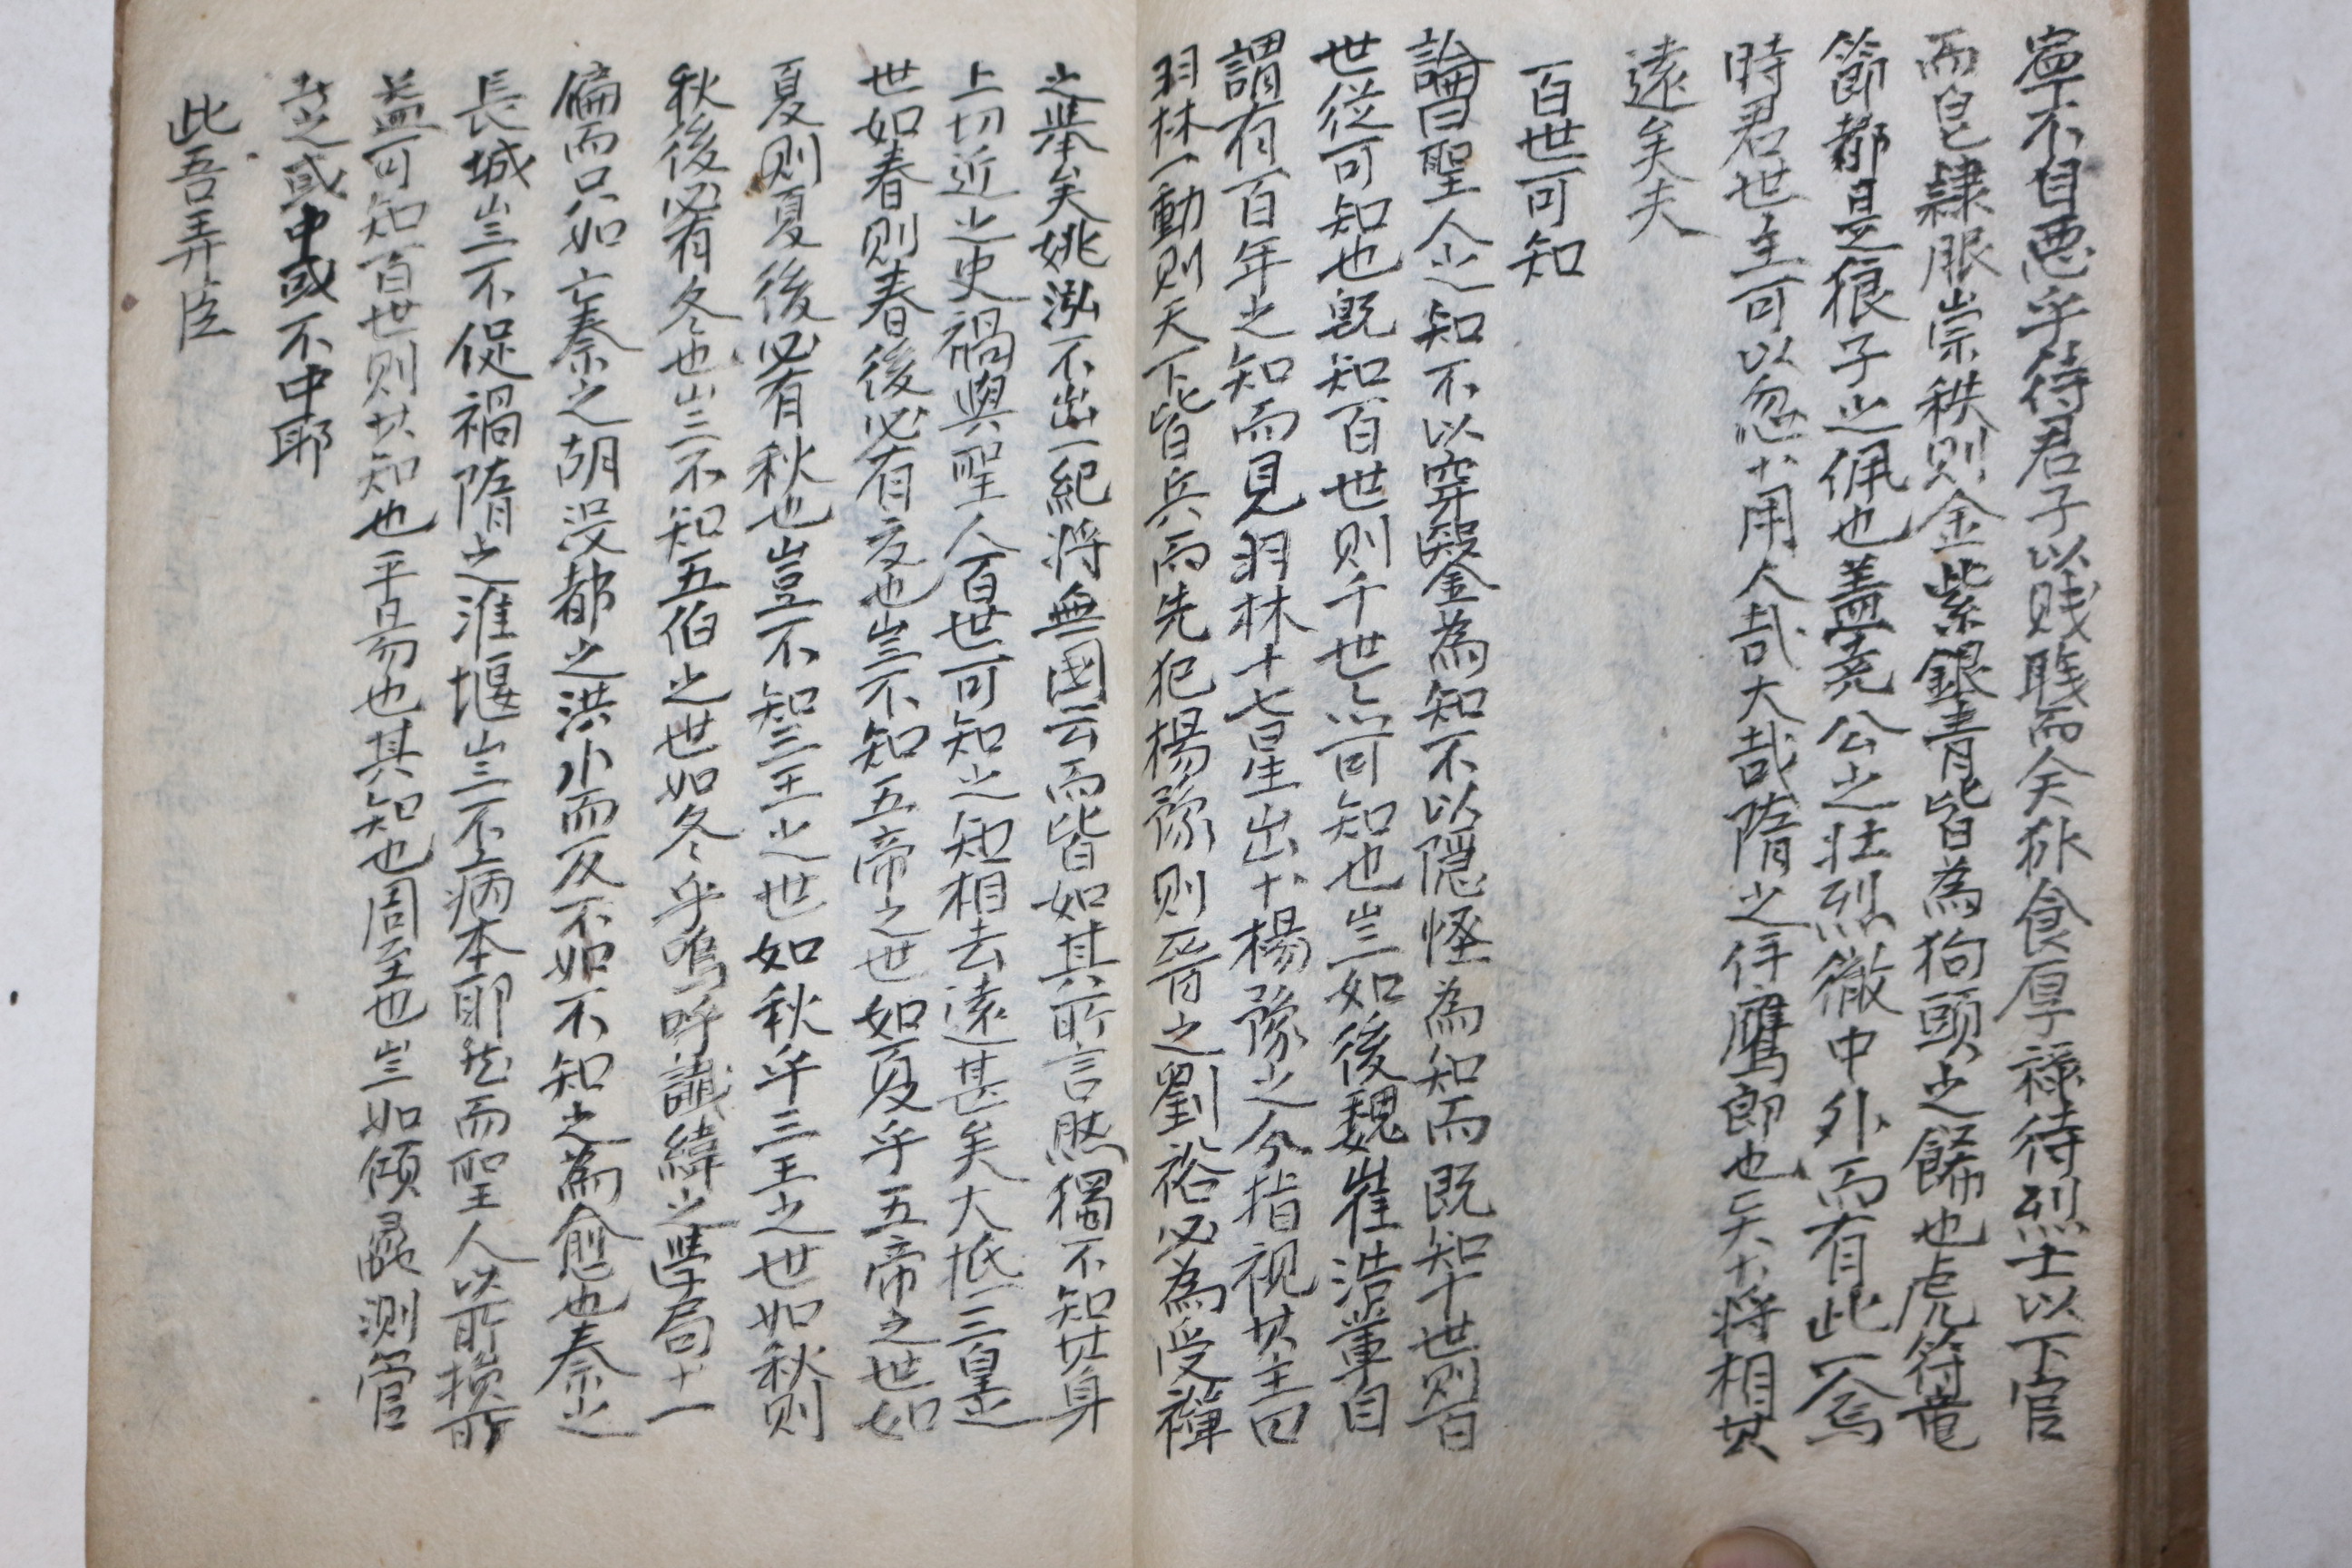 寧不自悪乎待君子以賤職而矣狀食厚祿待烈士以下官
而皂隷服崇秩則金紫銀青皆為狗頭之飾也虎符竜
節都是狼子之佩也盖堯公之壯烈徹中外而有此一
時君世主可以忽於用人哉大哉隋之侍鷹郎也矣於將相其
遠矣夫
百世可知
論曰聖人之知不以穿鑿為知不以隠怪為知而既知十世則百
世從可知也既知百世則千世亦可知也豈如後魏崔浩軍自
謂有百年之知而見羽林十七星出於楊豫之今指視其主曰
羽林一動則天下皆兵而先犯楊豫則晋之劉裕必為受禪
之擧矣姚泓不出一紀將無國云而皆如其所言然獨不知其身
上切近之史禍與聖人百世可知之知相去遠甚矣大抵三皇之
世如春則春後必有夏也豈不知五帝之世如夏乎五帝之世如
夏則夏後必有秋也豈不知三王之世如秋乎三王之世如秋則
秋後必有冬也豈不知五伯之世如冬乎嗚呼讖緯之學局於一
偏而只如亡秦之胡没都之洪小而反不如不知之為愈也秦之
長城豈不促禍隋之淮堰豈不病本耶然而聖人以所損所
益可知百世則其知也平昜也其知也周至也豈如傾蠡測管
者之或中或不中耶
此吾弄臣